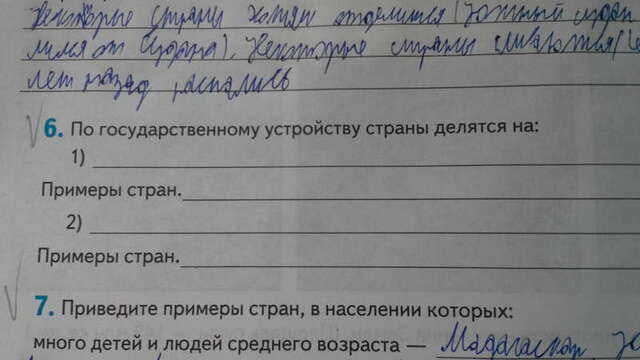 Некоторые страны хотят отделится (Южный судан
лился от Судана). Некоторые страны сливаются (
лет назад распались
6. По государственному устройству страны делятся на:
1)
Примеры стран.
2)
Примеры стран.
7. Приведите примеры стран, в населении которых:
много детей и людей среднего возраста — Мадагаскар